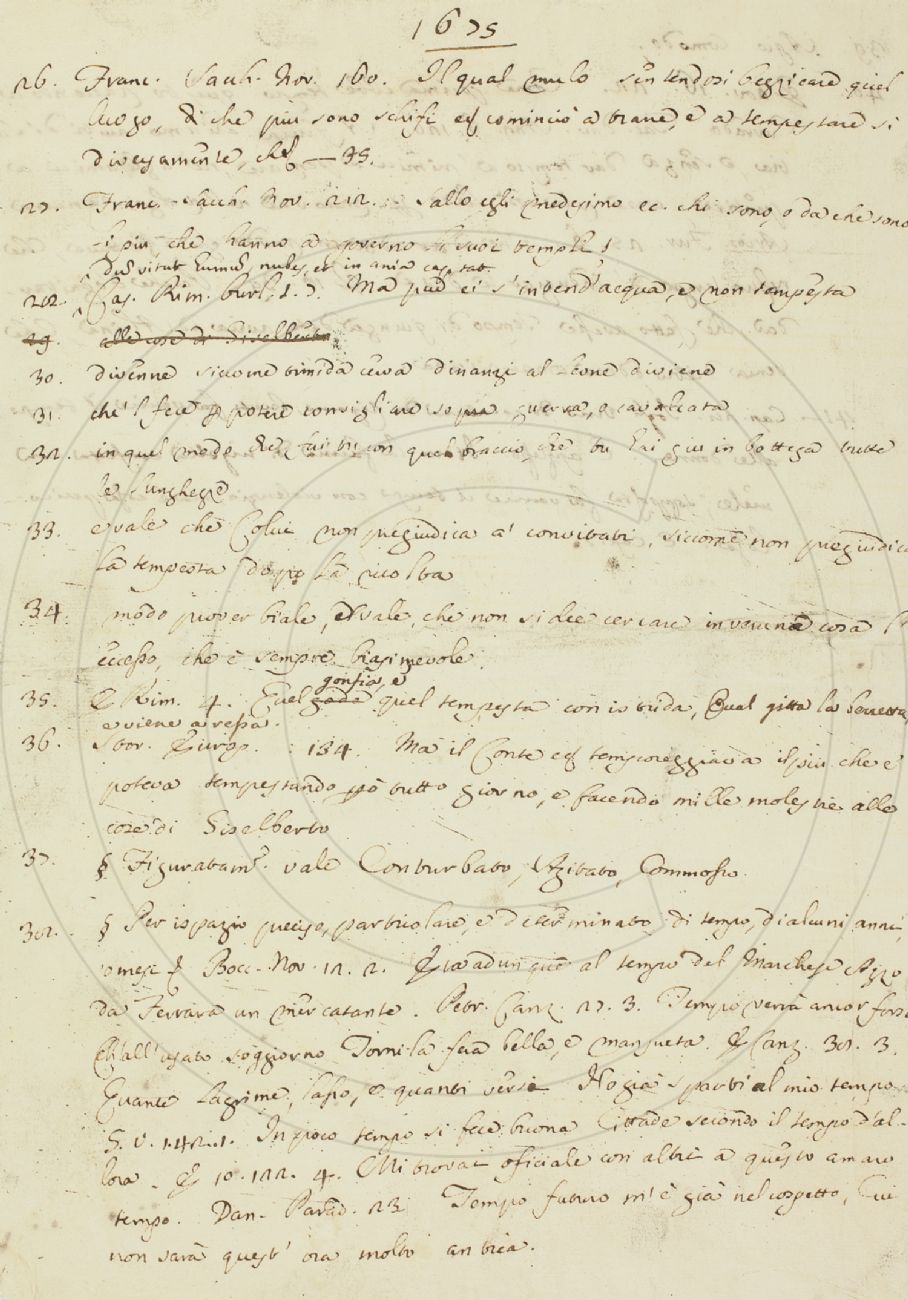 1675
26. Franc. Sacch. Nov. 160. Il qual mulo sentendosi bezzicare quel
luogo, di che più sono schifi ec cominciò a trarre, e a tempestare sì
diversamente, che — 35.
27. Franc. Sacch. Nov. 212. Sallo egli medesimo ec. chi sono, o da che sono
li più che hanno a governo li suoi templi!
Dum vitat humum, nubes, et inania captat.
28. Cas. Rim. burl. 1. 7. Ma pur ei s'intend'acqua, e non tempesta
29. alle cose di Giselberto
30. divenne siccome timida cerva dinanzi al Leone diviene
31. che'l fece potere consigliare sopra guerra, o cavalcata
32. in quel modo che fai tu con quel braccio, che tu hai giù in bottega tutte
le lunghezze
33. e vale che Colui non pregiudica a' convitati, siccome non pregiudica
la tempesta dopo la ricolta
34. modo proverbiale, e vale, che non si dee cercare in veruna cosa l'
eccesso, che è sempre biasimevole.
gonfia, e
35. E Rim. 4. Quel quel tempesta con istrida, Qual gitta la berretta,
e viene a ressa.
36. Stor. Europ. 134. Ma il Conte ec temporeggiava il più che e'
poteva tempestando tutto giorno, e facendo mille molestie alle
cose di Giselberto
37. § Figuratam. vale Conturbato, Agitato, Commosso.
38. § Per ispazio preciso, particolare, e determinato di tempo, di alcuni anni,
o mesi Bocc. Nov. 12. 2. Era adunque al tempo del Marchese Azzo
da Ferrara un mercatante. Petr. Canz. 27. 3. Tempo verrà ancor forse
Ch'all'usato soggiorno Torni la fera bella, e mansueta. E Canz. 38. 3.
Quante lagrime, lasso, e quanti versi Ho già sparti al mio tempo
G. V. 1.42.1. In poco tempo si fece buona Cittade secondo il tempo d'al-
lora. E 10. 122. 4. Mi trovai oficiale con altri a questo amaro
tempo. Dan. Parad. 23. Tempo futuro m'è già nel cospetto, Cui
non sarà quest' ora molto antica.